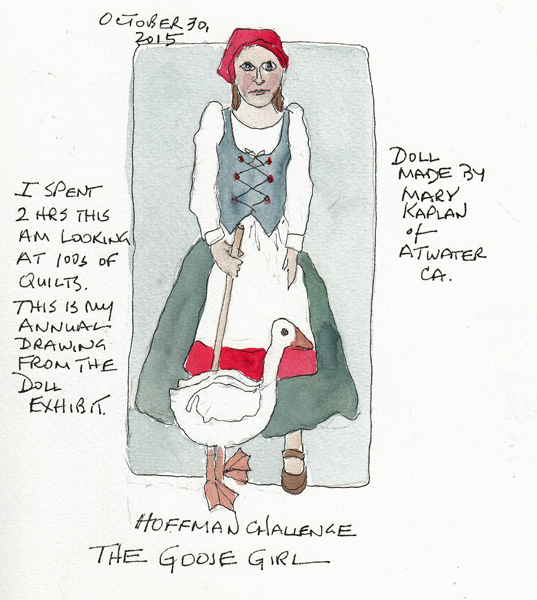 OCTOBER 30,
2015
I SPENT
2 HRS THIS
AM LOOKING
AT 100S OF
QUILTS.
THIS IS MY
ANNUAL
DRAWING
FROM THE
DOLL
EXHIBIT.
DOLL
MADE BY
MARY
KAPLAN
of
ATWATER
CA.
HOFFMAN CHALLENGE
THE GOOSE GIRL